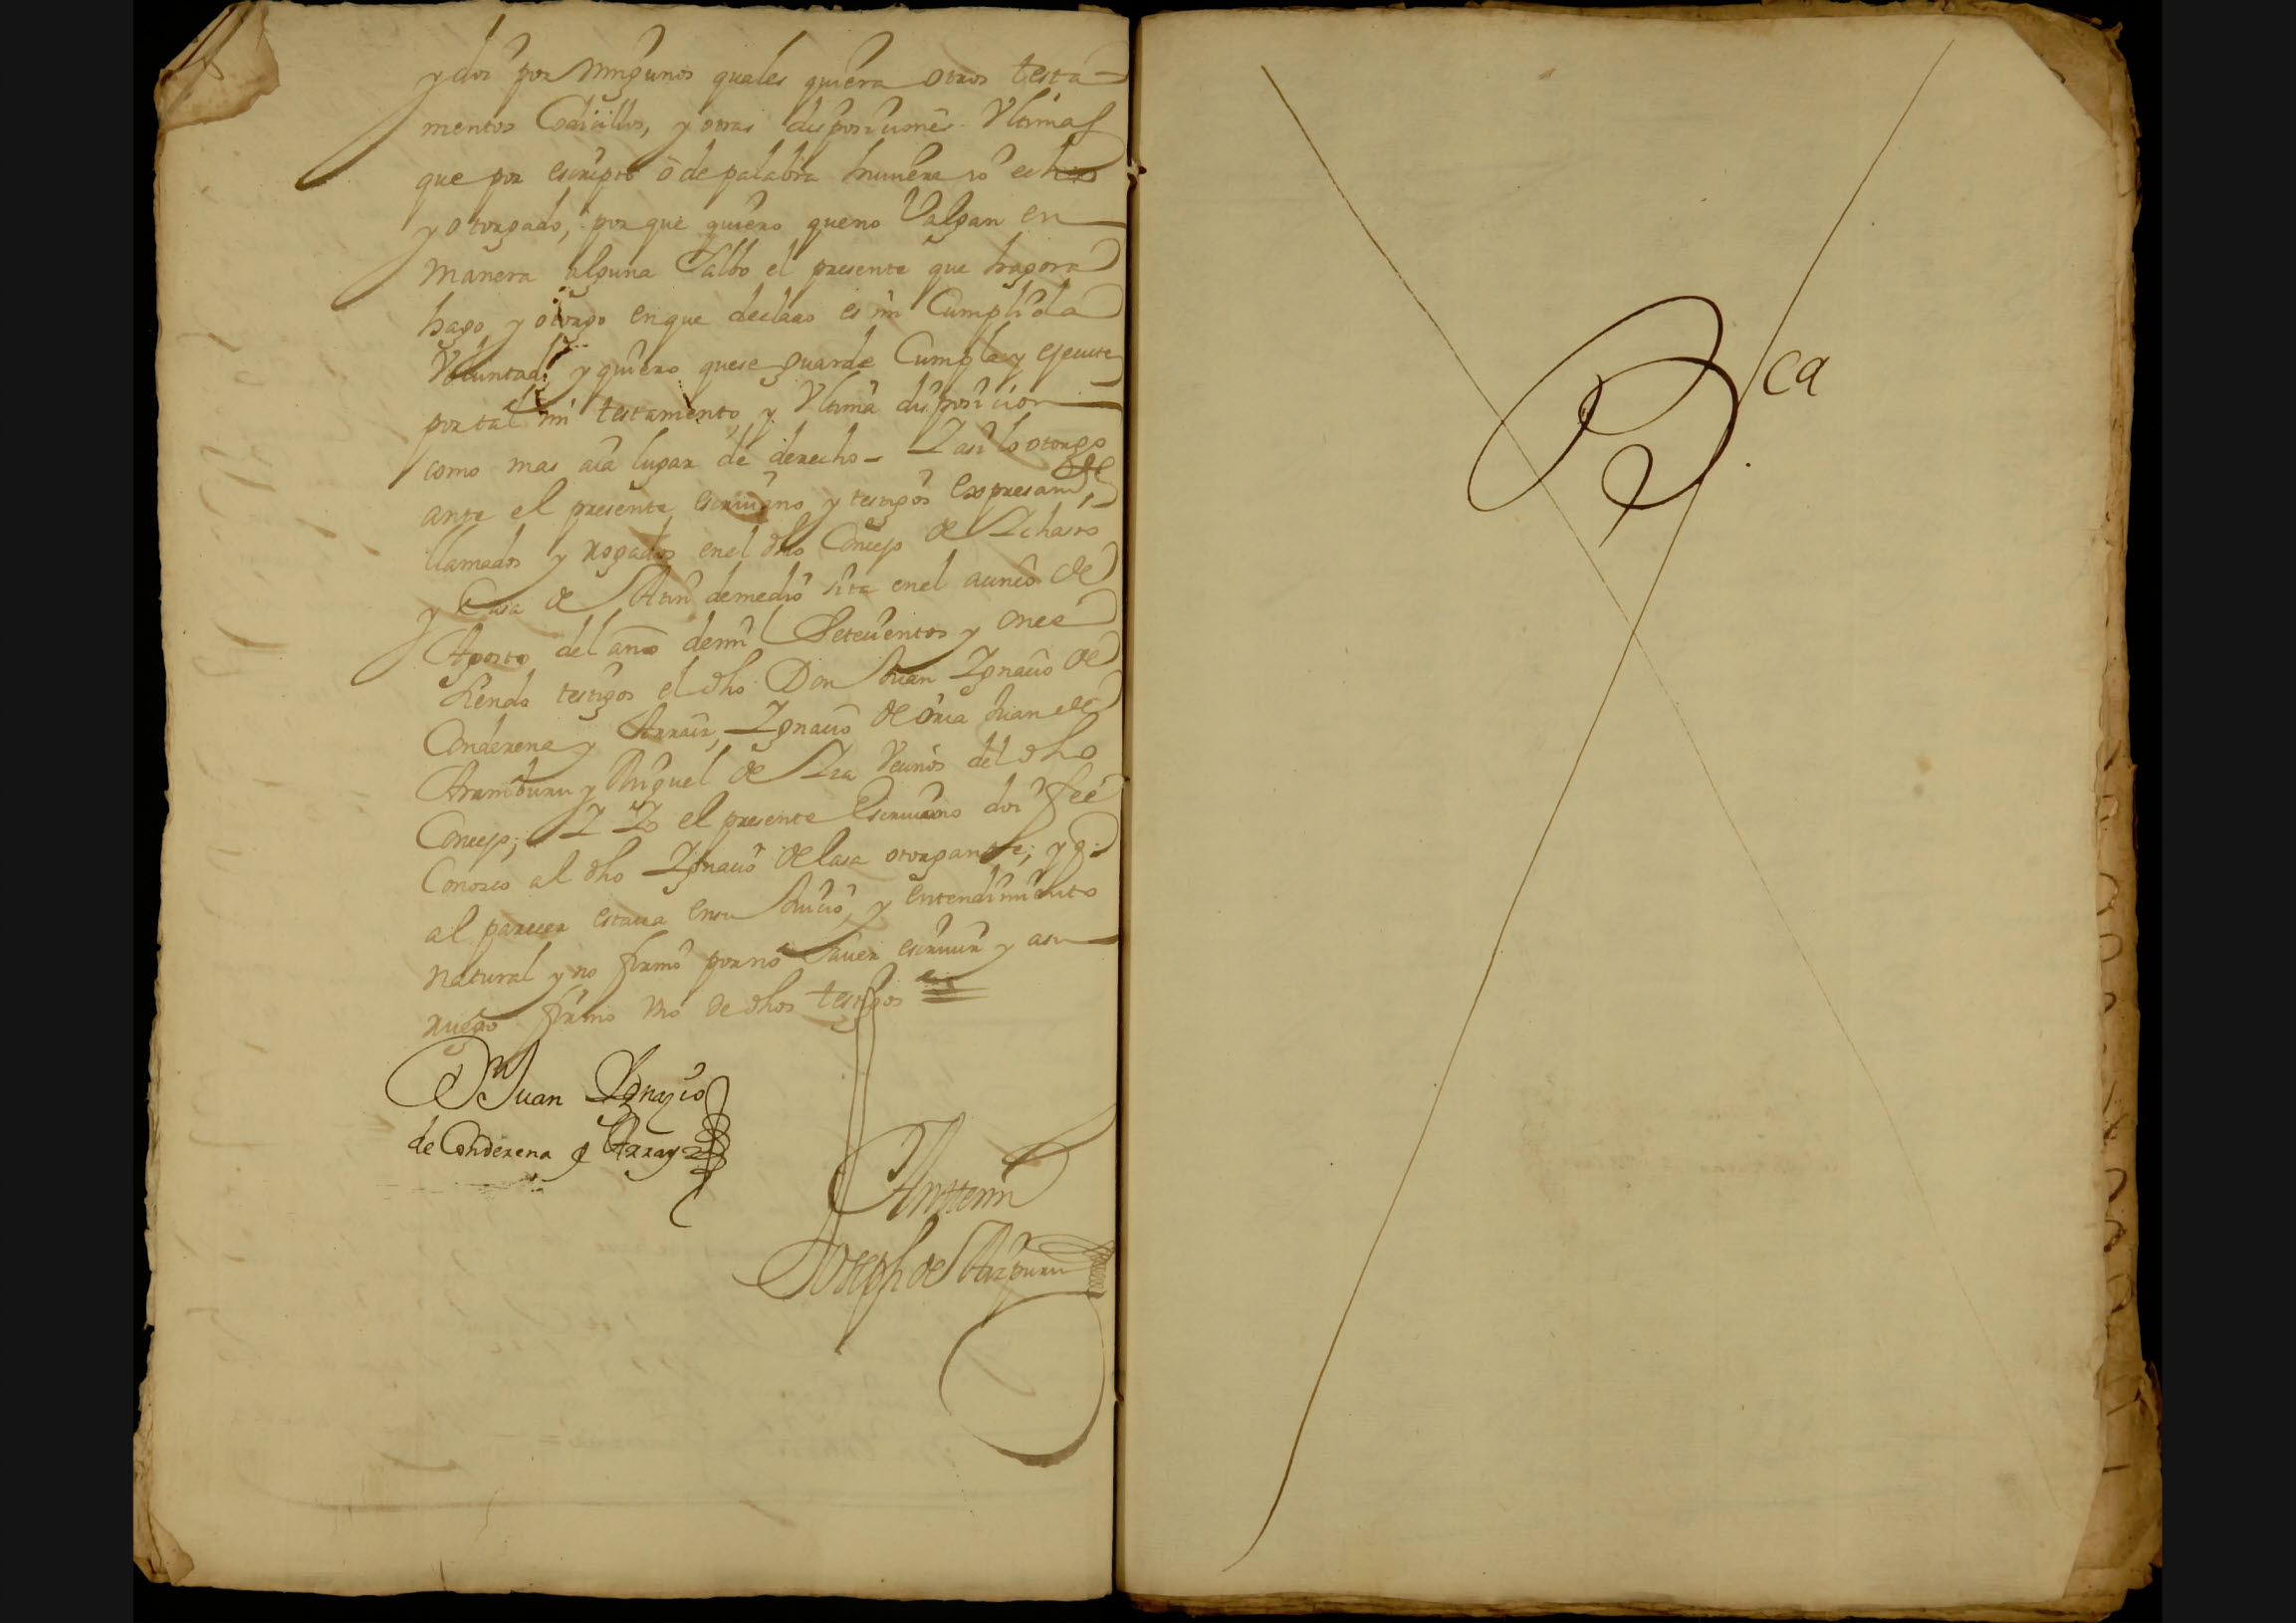 y doi por ningunos quales quiera otros testa-
mentos Codicillos, y otras disposiciones Vltimas
que por escripto ô de palabra huuiere io echos
y otorgado, porque quiero que no Valgan en
manera alguna Salbo el presente que hagora
hago y otorgo en que declaro es mi Cumplida
Voluntad, y quiero que se guarde Cumpla y ejecute
por tal mi testamento, y Vltima disposicion
como mas aia lugar de derecho - I asi lo otorgo
ante el presente escriuano y testigos
llamados y rogados en el dho Concejo de Ichaso
y Casa de de medio sita en el a cinco de
Agosto del año de mil Setecientos y once
siendo testigos el dho Don Juan Ignacio de
Conderena y Arraiz, Ignacio de Oria Juan de
Aramburu y Miguel de Vecinos del dho
Concejo; I Io el presente Escriuano doi feé
Conozco al dho Ignacio de lasa otorgante; y q.
al parecer estaua en su Juicio, y entendimiento
natural y no firmó por no sauer escriuir y a su
ruego firmo vno de dhos testigos
Dn Juan Ygnazio
de Conderena y Arrayz
Antemi
Joseph de Aizpuru
Bca